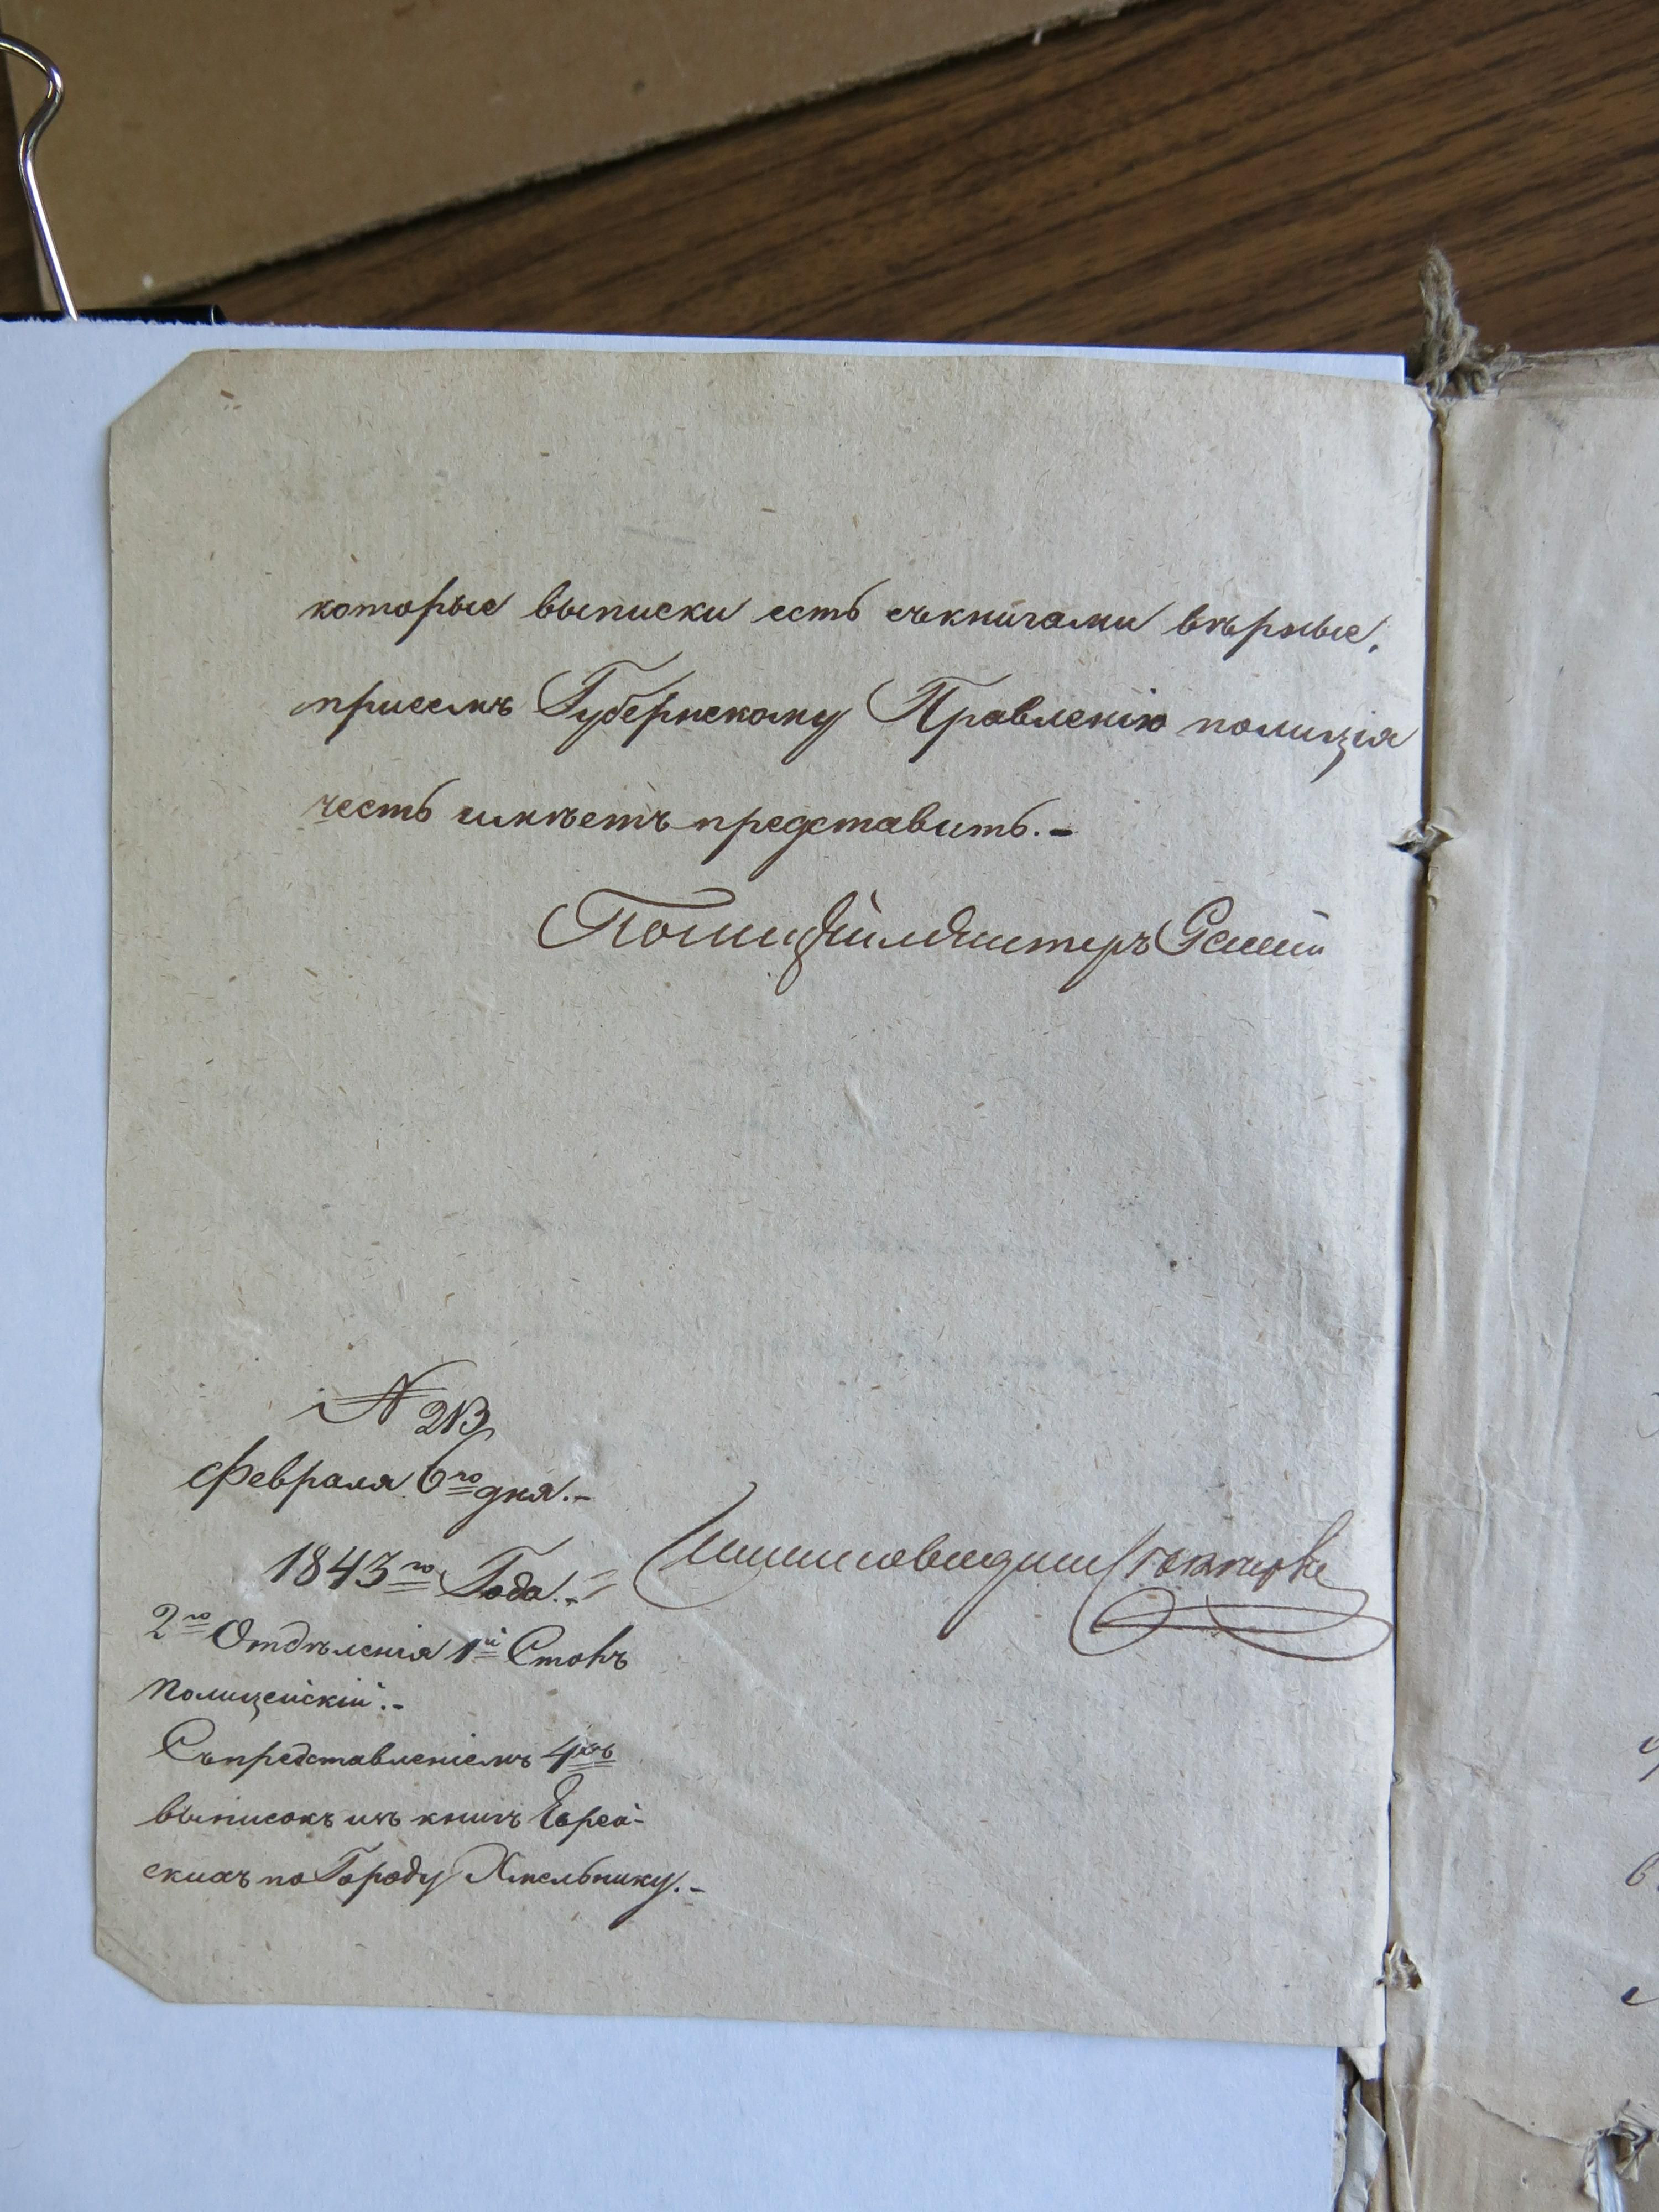 которые выписки есть съкнигами вѣрные,
присемъ Губернскому Правленію полиція
честь имѣетъ представить.-
Полицейместеръ
№ 213
Февраля 6го дня.-
1843го Года.-
2го Отдѣленія 1й Столъ
полицейскій.-
Съпредставленіемъ 4хъ
выписокъ изъ книгъ Еврей-
скихъ по Городу Хмельнику.-